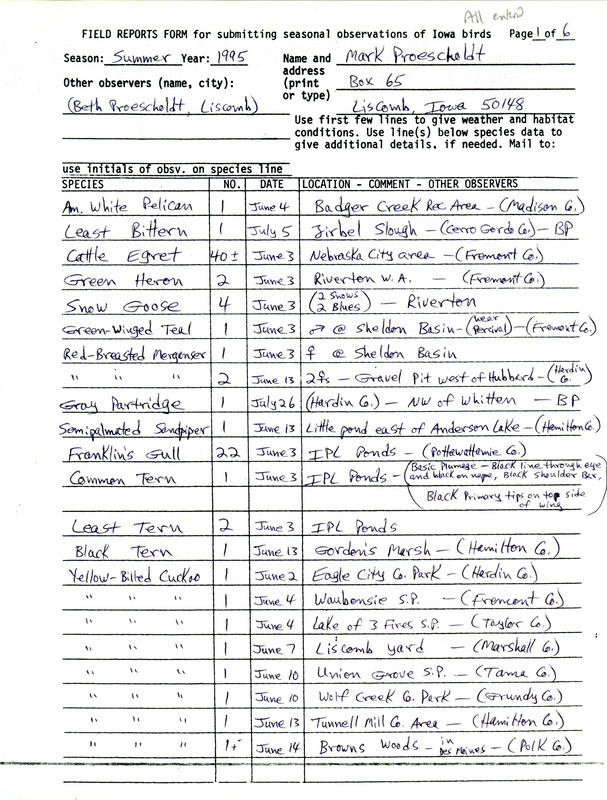 All entered
FIELD REPORTS FORM for submitting seasonal observations of Iowa birds Page 1 of 6
Season: Summer Year: 1995 Name and address (print or type) Mark Proescholdt
Other observers (name, city): Box 65
(Beth Proescholdt, Liscomb) Liscomb, Iowa 50148
Use first few lines to give weather and habitat
conditions. Use line(s) below species data to
give additional details, if needed. Mail to:
use initials of obsv. on species line
SPECIES NO. DATE LOCATION - COMMENT - OTHER OBSERVERS
Am. White Pelican 1 June 4 Badger Creek Rec Area - (Madison Co.)
Least Bittern 1 July 5 Zirbel Slough - (Cerro Gordo Co.) - BP
Cattle Egret 40± June 3 Nebraska City area - (Fremont Co.)
Green Heron 2 June 3 Riverton W.A. - (Fremont Co.)
Snow Goose 4 June 3 (2 Snows 2 Blues) - Riverton
Green-Winged Teal 1 June 3 ♂ @ Sheldon Basin - (near Percival) - (Fremont Co.)
Red-Breasted Merganser 1 June 3 ♀ @ Sheldon Basin
" " " 2 June 13 2♀s - Gravel Pit west of Hubbard - (Hardin Co.)
Gray Partridge 1 July 26 (Hardin Co.) - NW of Whitten - BP
Semipalmated Sandpiper 1 June 13 Little pond east of Anderson Lake - (Hamilton Co.)
Franklin's Gull 22 June 3 IPL Ponds - (Pottawattamie Co.)
Common Tern 1 June 3 IPL Ponds - (Basic Plumage - Black line through eye
and black on nape, Black Shoulder Bar,
Black Primary tips on top side
of wing)
Least Tern 2 June 3 IPL Ponds
Black Tern 1 June 13 Gorden's Marsh - (Hamilton Co.)
Yellow-Billed Cuckoo 1 June 2 Eagle City Co. Park - (Hardin Co.)
" " " 1 June 4 Waubonsie S.P. - (Fremont Co.)
" " " 1 June 4 Lake of 3 Fires S.P. - (Taylor Co.)
" " " 1 June 7 Liscomb yard - (Marshall Co.)
" " " 1 June 10 Union Grove S.P. - (Tama Co.)
" " " 1 June 10 Wolf Creek Co. Park - (Grundy Co.)
" " " 1 June 13 Tunnell Mill Co. Area - (Hamilton Co.)
" " " 1+ June 14 Browns Woods - in Des Moines - (Polk Co.)